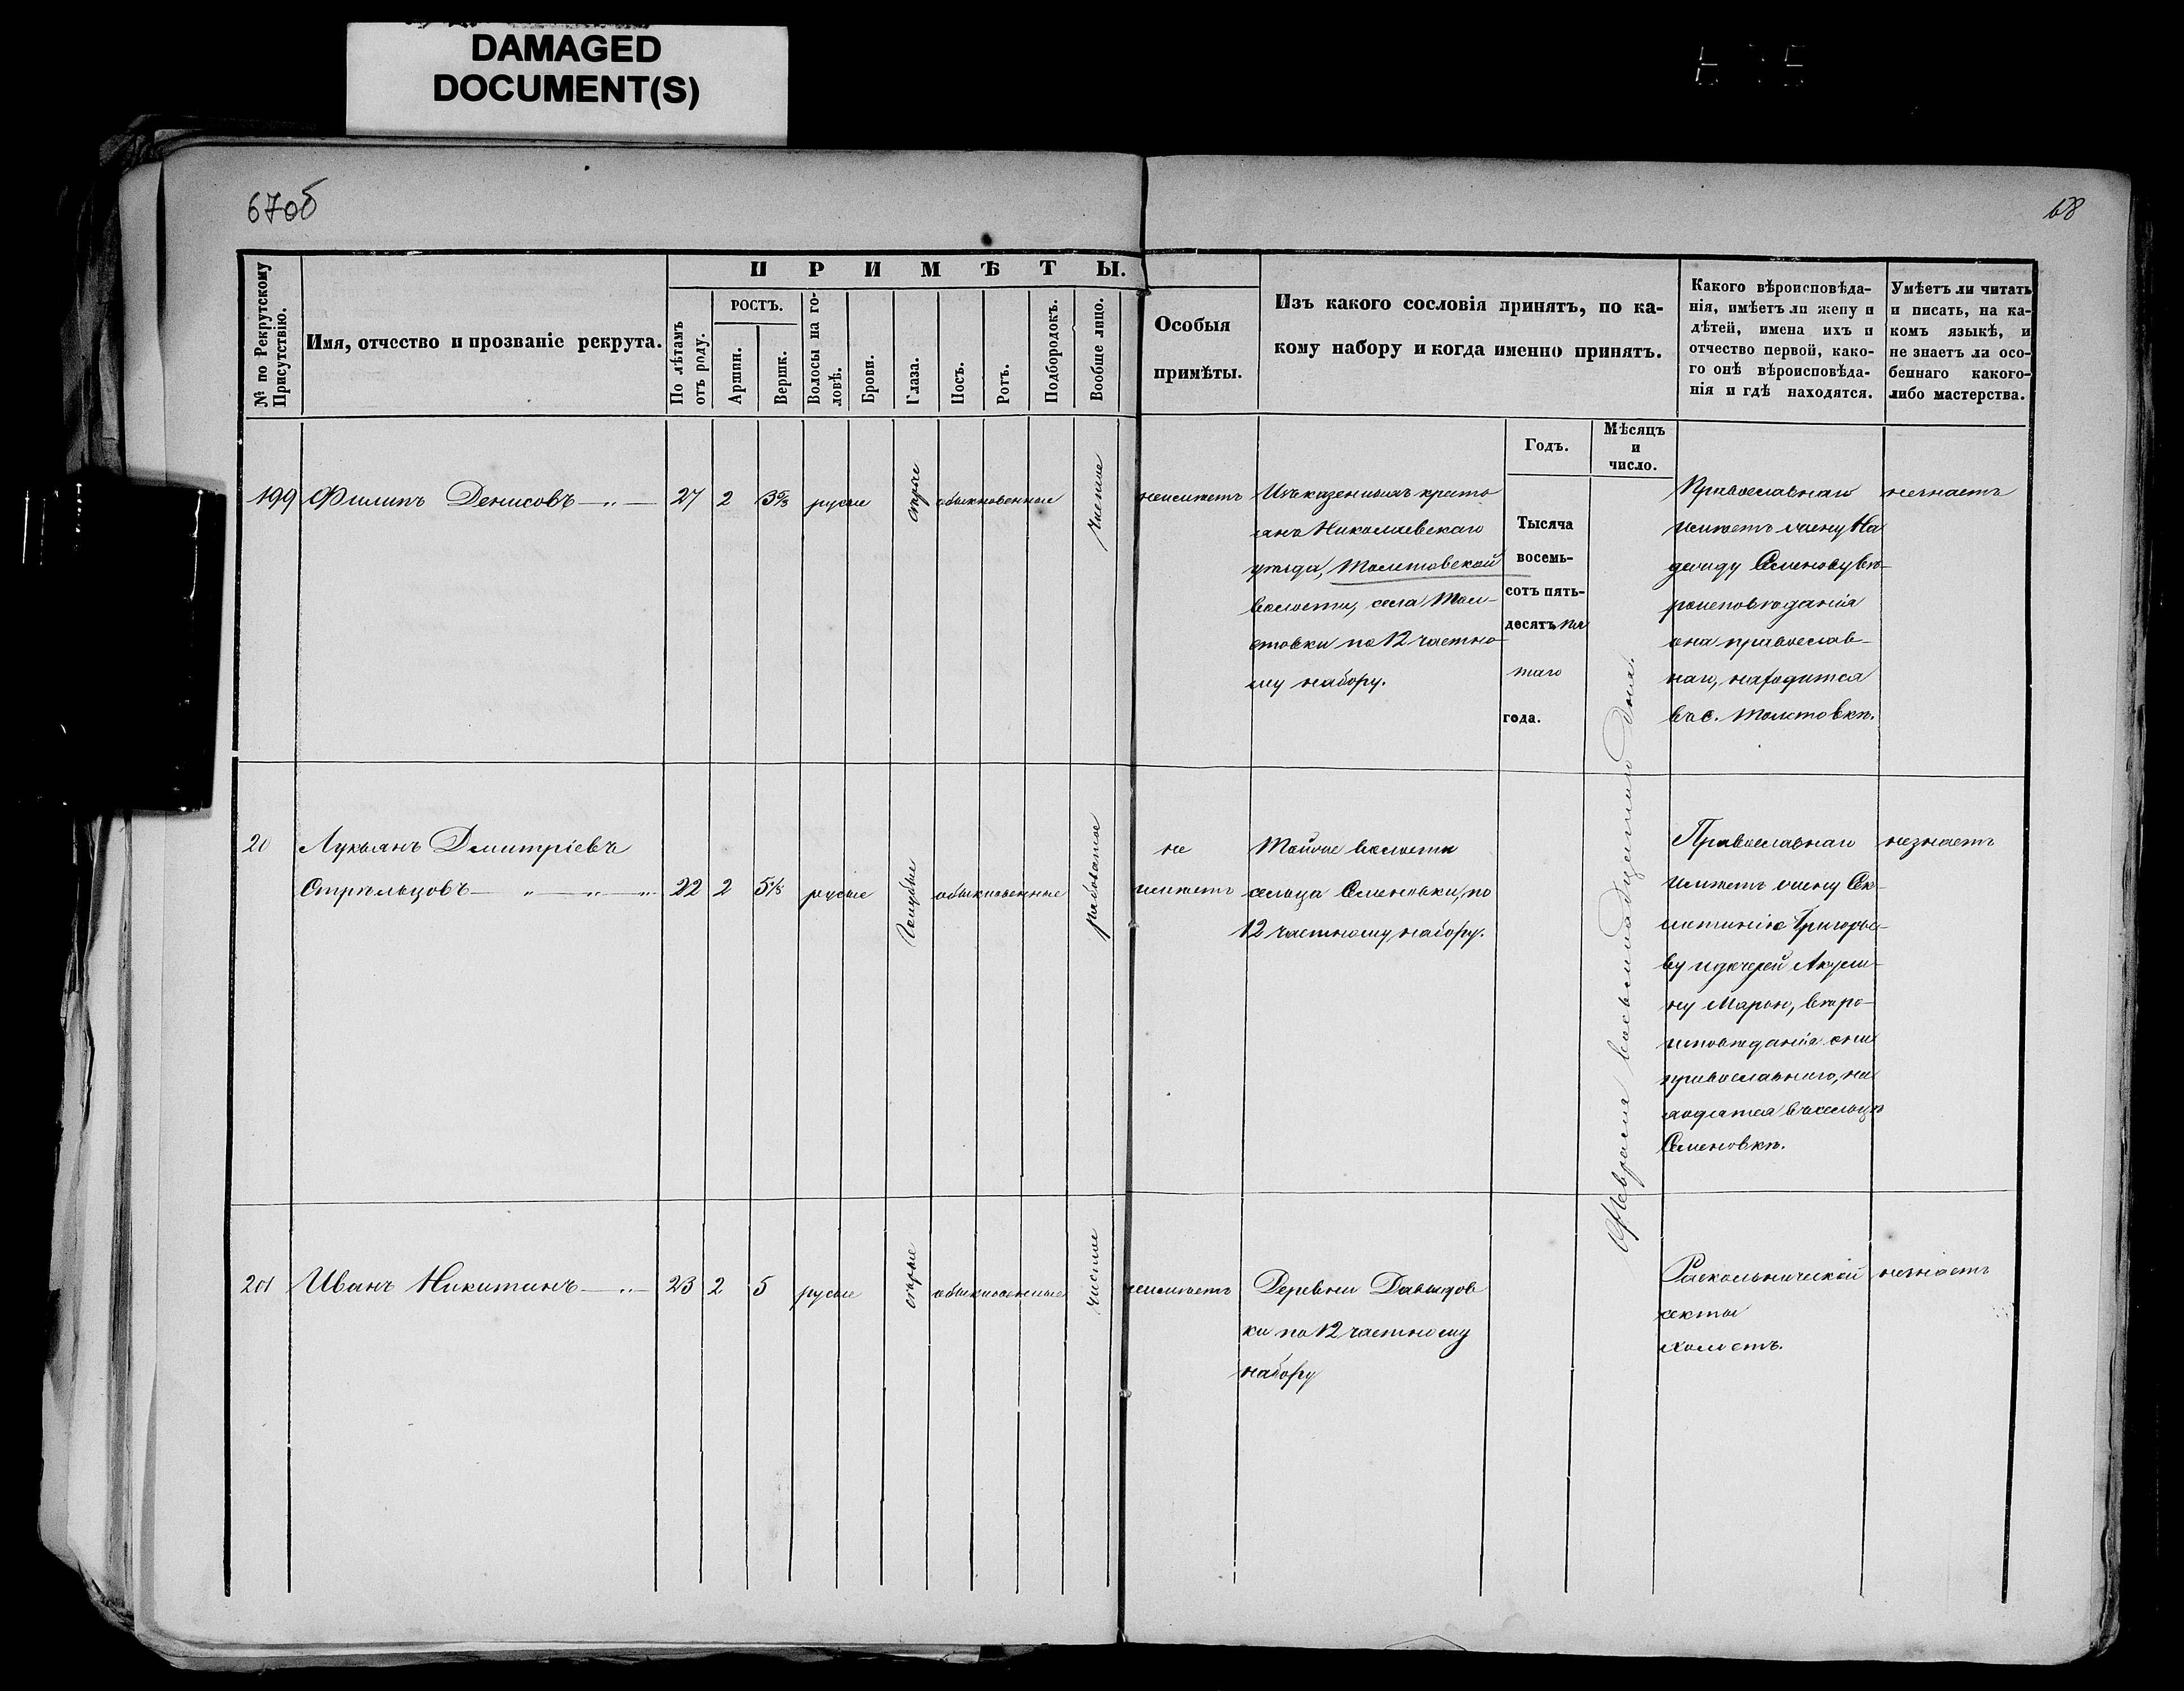 DAMAGED
DOCUMENT(S)
67об
68
№ по Рекрутскому Присутствію.
Имя, отчество и прозваніе рекрута.
ПРИМѢТЫ.
По лѣтамъ отъ роду.
РОСТЪ.
Аршин.
Вершк.
Волосы на головѣ.
Брови.
Глаза.
Носъ.
Ротъ.
Подбородокъ.
Вообще лицо.
Особыя
примѣты.
Изъ какого сословія принятъ, по ка-
кому набору и когда именно принятъ.
Какого вѣроисповѣда-
нія, имѣетъ ли жену и
дѣтей, имена ихъ и
отчество первой, како-
го онѣ вѣроисповѣда-
нія и гдѣ находятся.
Умѣетъ ли читать
и писать, на ка-
комъ языкѣ, и
не знаетъ ли осо-
беннаго какого-
либо мастерства.
Годъ.
Мѣсяцъ
и
число.
199 Филипъ Денисовъ 27 2 3⅝ русые сѣрые обыкновенные чистое
неимѣетъ
Изъ казенныхъ кресть
янъ Николаевскаго
уѣзда, Толстовской
волости, села Тол-
стовки по 12 частно-
му набору.
Тысяча
восемь-
сотъ пять-
десятъ пя
таго
года.
Февраля восемнадцатаго дня.
Православнаго
имѣетъ жену На
дежду Семенову вѣ-
роисповѣданія
она православ-
наго, находится
въ с. Толстовкѣ.
незнаетъ
20 Лукьянъ Дмитріевъ
Стрѣльцовъ 22 2 5⅛ русые голубые обыкновенные рябоватое
не
имѣетъ
Тойже волости
сельца Семеновки, по
12 частному набору.
Православнаго
имѣетъ жену Се-
клитинію Григорье-
ву и дочерей Акули-
ну Марью, вѣро-
исповѣданія они
православнаго, на
ходятся въ сельцѣ
Семеновкѣ.
незнаетъ
201 Иванъ Никитинъ 23 2 5 русые сѣрые обыкновенные чистое
неимѣетъ
Деревни Давыдов
ки по 12 частному
набору
Раскольнической
секты
холостъ.
незнаетъ